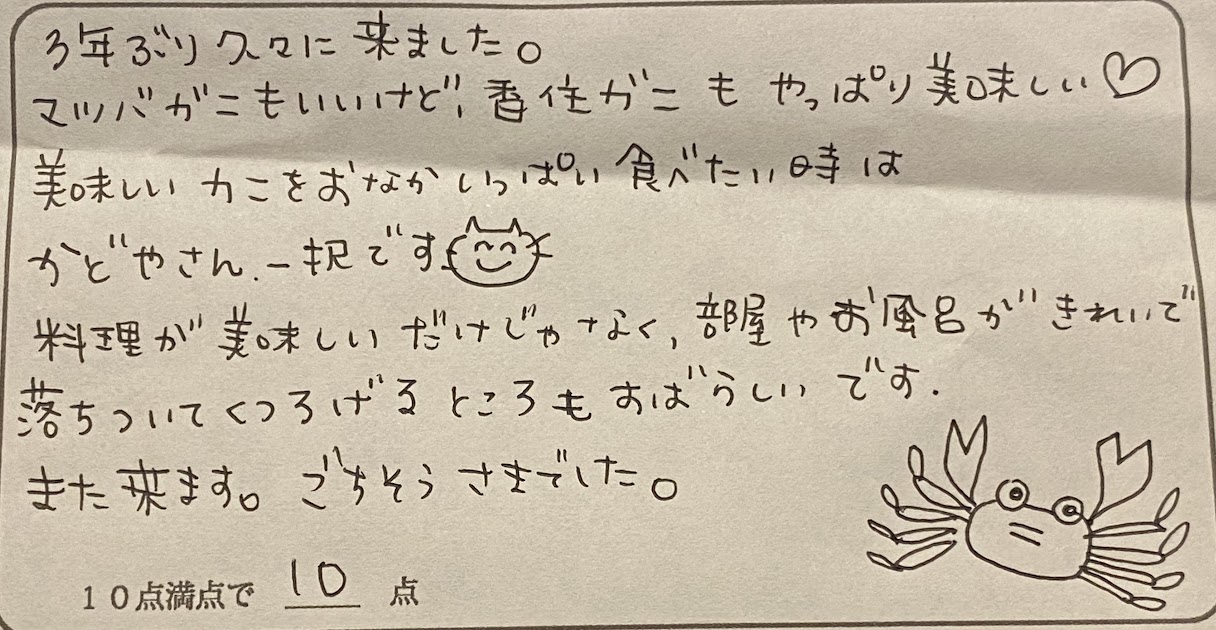 3年ぶり久々に来ました。
マツバガニもいいけど、香住ガニもやっぱり美味しい♡
美味しいカニをおなかいっぱい食べたい時は
かどやさん一択です
料理が美味しいだけじゃなく、部屋やお風呂がきれいで
落ちついてくつろげるところもすばらしいです.
また来ます。ごちそうさまでした。
10点満点で 10 点